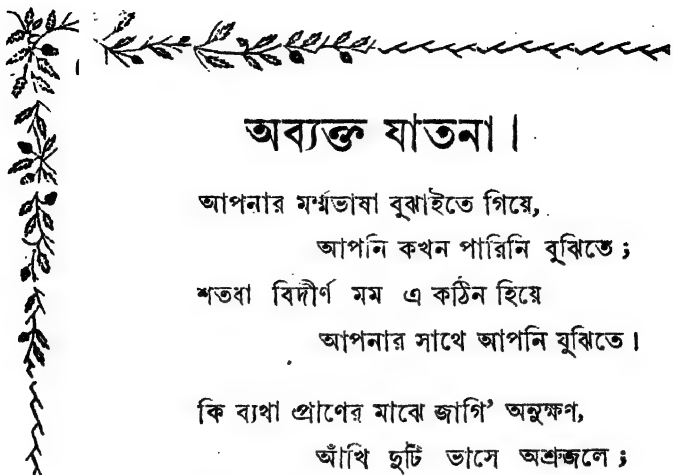 অব্যক্ত যাতনা।
আপনার মর্ম্মভাষা বুঝাইতে গিয়ে,
আপনি কখন পারিনি বুঝিতে ;
শতধা বিদীর্ণ মম এ কঠিন হিয়ে
আপনার সাথে আপনি যুঝিতে।
কি ব্যথা প্রাণের মাঝে জাগি’ অনুক্ষণ,
আঁখি দুটি ভাসে অশ্রুজলে ;